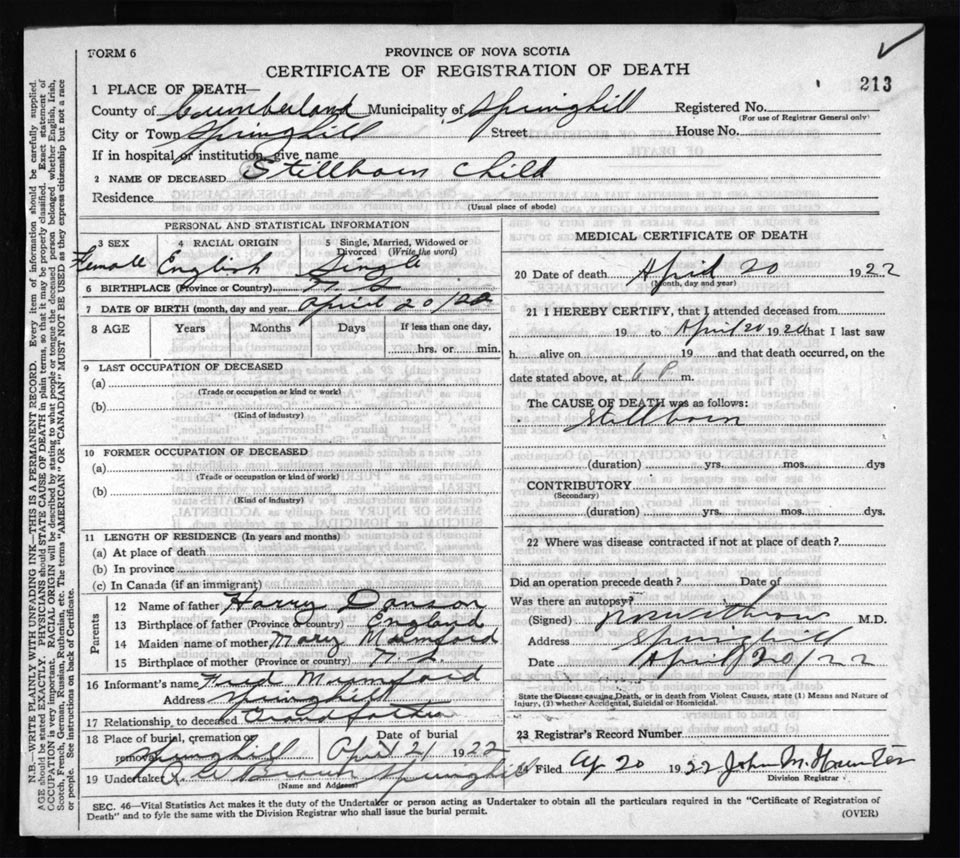 FORM 6
PROVINCE OF NOVA SCOTIA
CERTIFICATE OF REGISTRATION OF DEATH
213
1 PLACE OF DEATH—
County of Cumberland Municipality of Springhill Registered No.
(For use of Registrar General only)
City or Town Springhill Street House No.
If in hospital or institution, give name
2 NAME OF DECEASED Stillborn Child
Residence
(Usual place of abode)
PERSONAL AND STATISTICAL INFORMATION
3 SEX 4 RACIAL ORIGIN 5 Single, Married, Widowed or Divorced (Write the word)
Female English Single
6 BIRTHPLACE (Province or Country) N. S.
7 DATE OF BIRTH (month, day and year) April 20/22
8 AGE Years Months Days If less than one day,
hrs. or min.
9 LAST OCCUPATION OF DECEASED
(a)
(Trade or occupation or kind or work)
(b)
(Kind of industry)
10 FORMER OCCUPATION OF DECEASED
(a)
(Trade or occupation or kind or work)
(b)
(Kind of industry)
11 LENGTH OF RESIDENCE (In years and months)
(a) At place of death
(b) In province
(c) In Canada (if an immigrant)
Parents
12 Name of father Harry Danson
13 Birthplace of father (Province or country) England
14 Maiden name of mother Mary Mumford
15 Birthplace of mother (Province or country) N. S.
16 Informant's name Fred Mumford
Address Springhill
17 Relationship to deceased Grandfather
18 Place of burial, cremation or removal Springhill Date of burial April 21 1922
19 Undertaker Brown Springhill
(Name and Address)
MEDICAL CERTIFICATE OF DEATH
20 Date of death April 20 1922
(Month, day and year)
21 I HEREBY CERTIFY, that I attended deceased from
19 to April 20 1920 that I last saw
h alive on 19 and that death occurred, on the
date stated above, at 6 P. m.
The CAUSE OF DEATH was as follows:
Stillborn
(duration) yrs. mos. dys
CONTRIBUTORY
(Secondary)
(duration) yrs. mos. dys.
22 Where was disease contracted if not at place of death?
Did an operation precede death? Date of
Was there an autopsy?
(Signed) M.D.
Address Springhill
Date April 20/22
State the Disease causing Death, or in death from Violent Causes, state (1) Means and Nature of
Injury, (2) whether Accidental, Suicidal or Homicidal.
23 Registrar's Record Number
24 Filed Ap 20 1922 John M. Hunter
Division Registrar
SEC. 46—Vital Statistics Act makes it the duty of the Undertaker or person acting as Undertaker to obtain all the particulars required in the "Certificate of Registration of
Death" and to fyle the same with the Division Registrar who shall issue the burial permit.
(OVER)
N.B.—WRITE PLAINLY WITH UNFADING INK—THIS IS A PERMANENT RECORD. Every item of information should be carefully supplied.
AGE should be stated EXACTLY. PHYSICIANS should STATE CAUSE OF DEATH in plain terms, so that it may be properly classified. Exact statement of
OCCUPATION is very important. RACIAL ORIGIN will be described by stating to what people or tongue the deceased person belonged whether English, Irish,
Scotch, French, German, Russian, Ruthenian, etc. The terms "AMERICAN" OR "CANADIAN" MUST NOT BE USED as they express citizenship but not a race
or people. See instructions on back of Certificate.